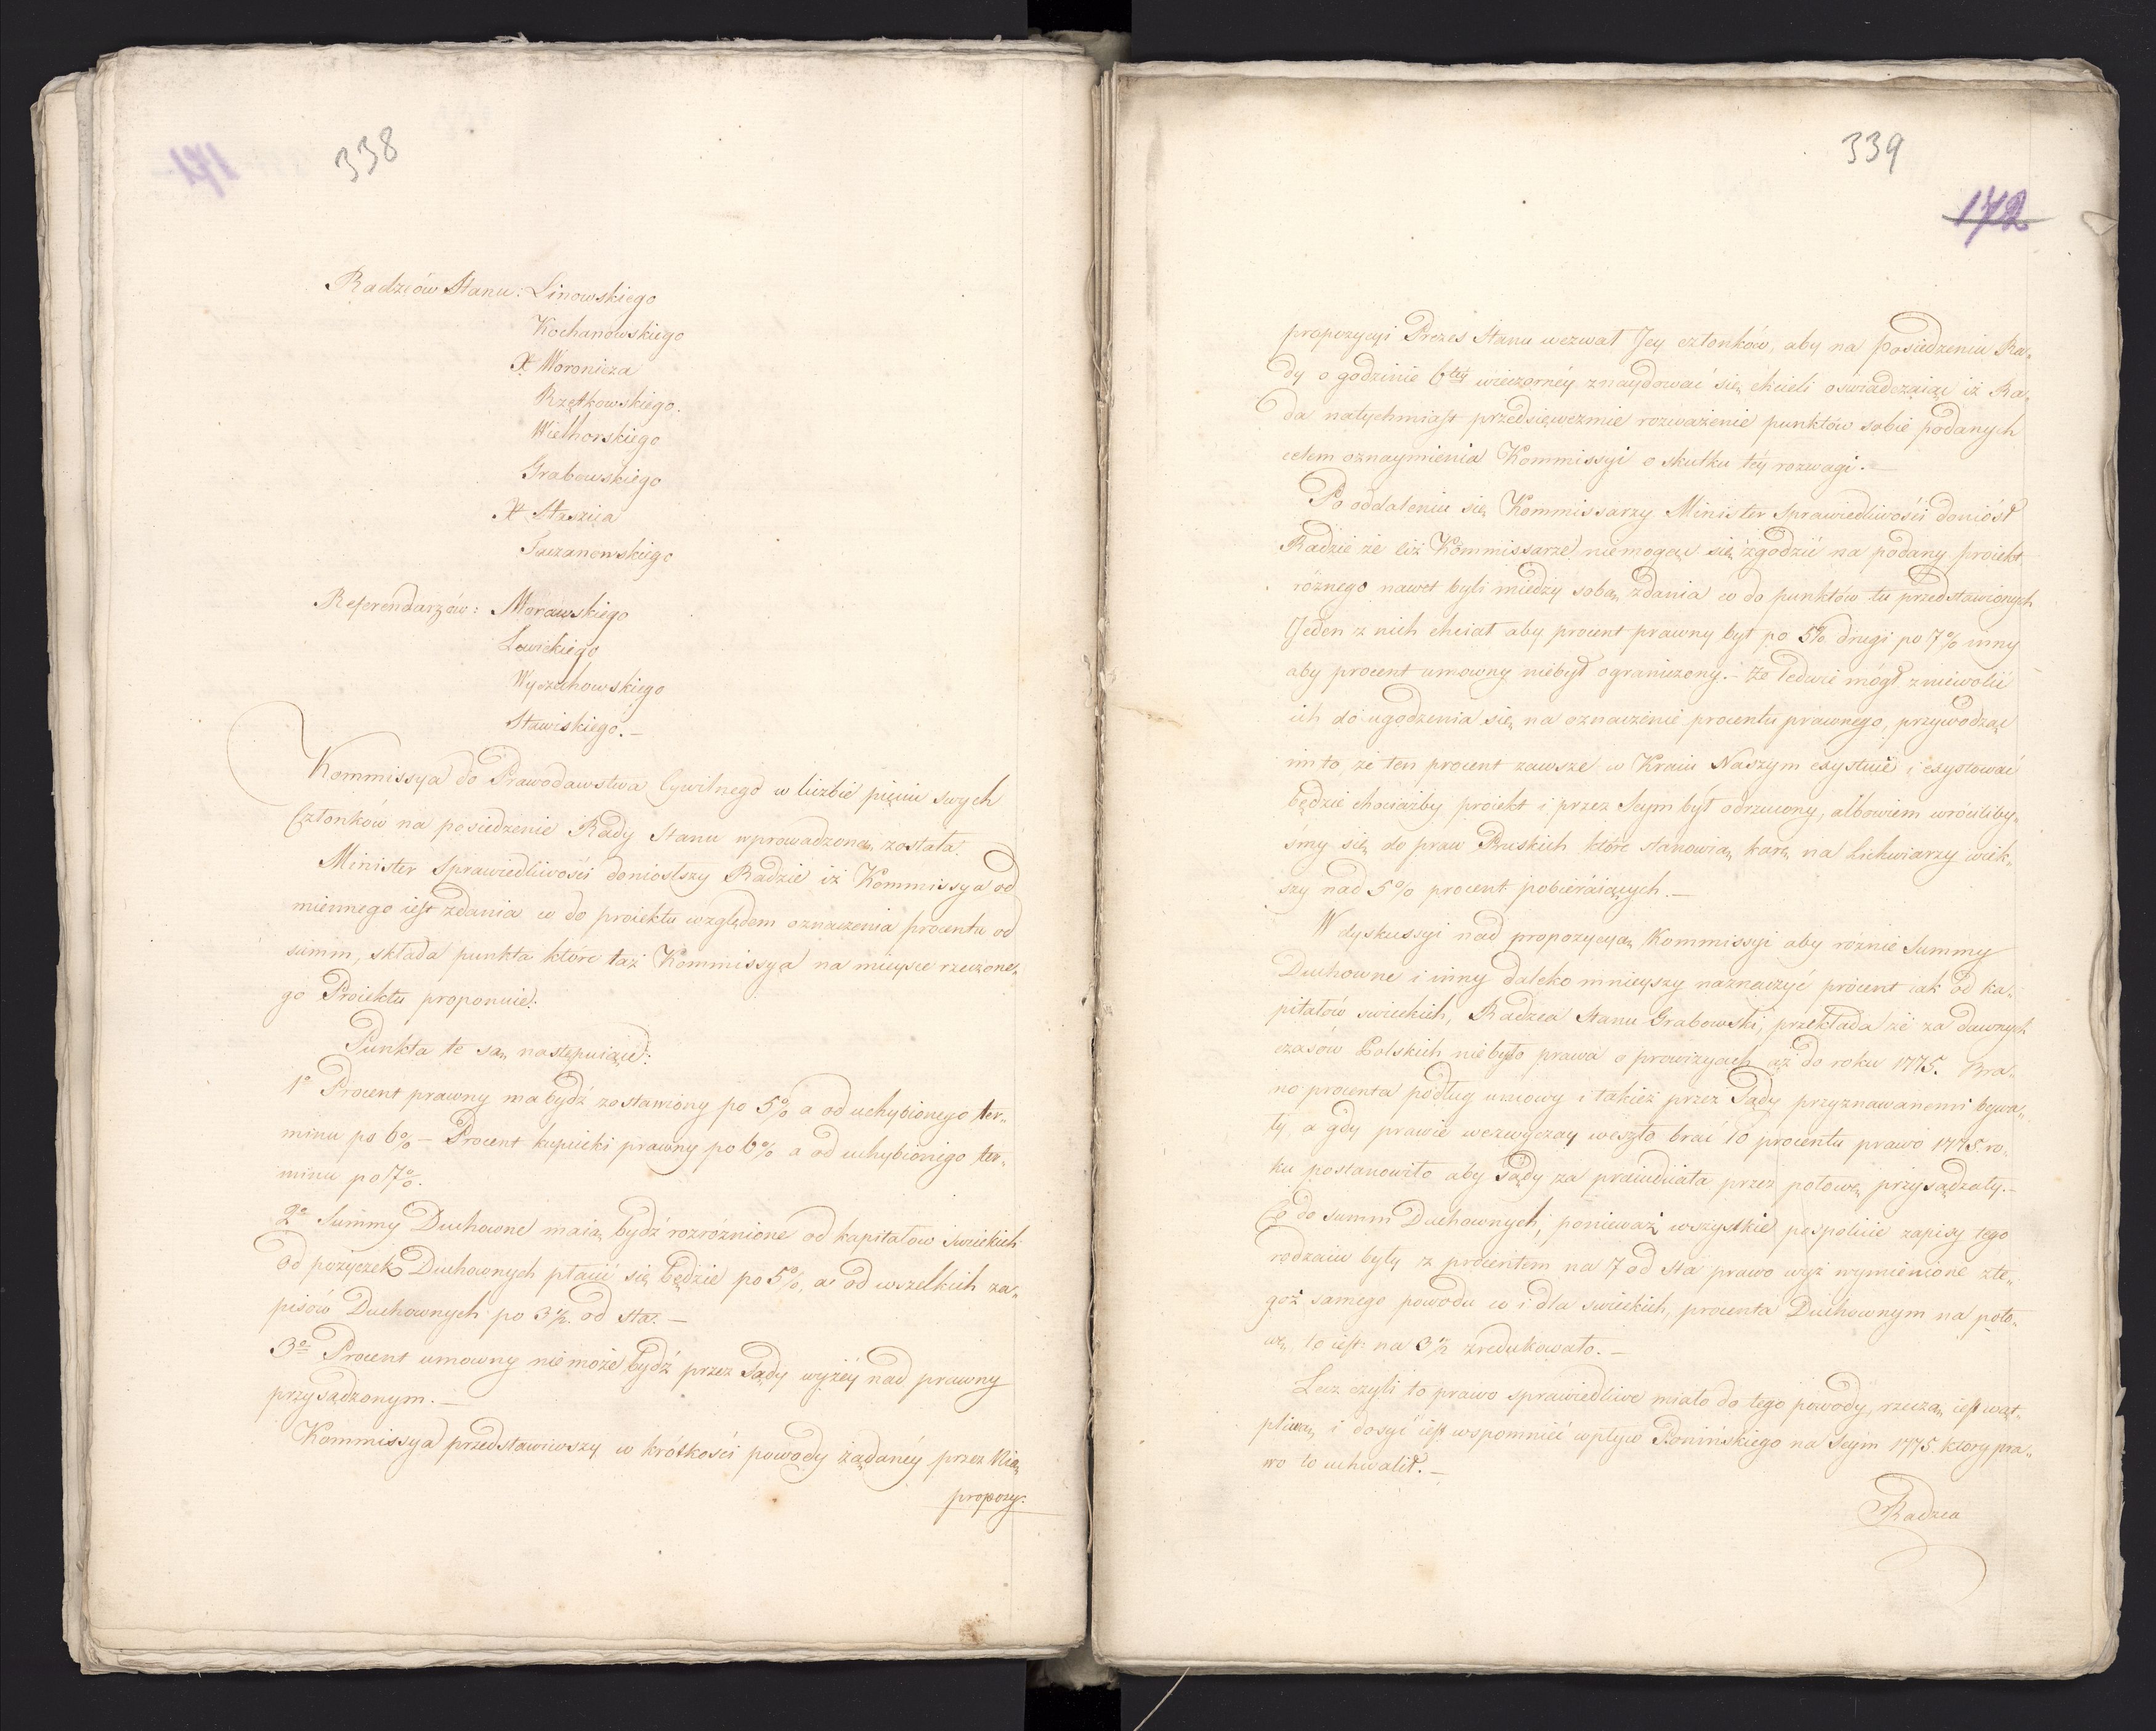 338
171
Radzców Stanu: Linowskiego
Kochanowskiego
X Woronicza
Rzętkowskiego.
Wielhorskiego
Grabowskiego
X Staszica
Tarzanowskiego
Referendarzów: Morawskiego
Lewickiego
Wyczechowskiego
Stawiskiego. –
Kommissya do Prawodawstwa Cywilnego w liczbie pięciu swych
Członków na posiedzenie Rady Stanu wprowadzoną została.
Minister Sprawiedliwości doniosłszy Radzie iż Kommissya od
miennego iest zdania co do proiektu względem oznaczenia procentu od
summ, składa punkta które taż Kommissya na mieysce rzeczone„
go Proiektu proponuie:
Punkta te są następuiące:
1o Procent prawny ma bydź zostawiony po 5% a od uchybionego ter„
minu po 6% – Procent kupiecki prawny po 6% a od uchybionego ter„
minu po 7%.
2o Summy Duchowne maią bydź rozróżnione od kapitałow swieckich
od pożyczek Duchownych płacić się będzie po 5%, a od wszelkich za„
pisów Duchownych po 3½ od sta. –
3o Procent umowny nie może bydź przez Sądy wyżéy nad prawny
przysądzonym. –
Kommissya przedstawiwszy w krótkości powody żądanéy przez Nią
propozy:
339
172
propozycyi Prezes Stanu wezwał Jey członków, aby na posiedzeniu Ra„
dy o godzinie 6téy wieczornéy znaydować się chcieli oswiadczaiąc iż Ra„
da natychmiast przedsięweźmie rozważenie punktów sobie podanych
celem oznaymienia Kommissyi o skutku téy rozwagi. –
Po oddaleniu się Kommissarzy Minister Sprawiedliwości doniósł
Radzie że ciż Kommissarze niemogąc się zgodzić na podany proiekt
różnego nawet byli miedzy sobą zdania co do punktów tu przedstawionych
Jeden z nich chciał aby procent prawny był po 5% drugi po 7% inny
aby procent umowny niebył ograniczony. – Że ledwie mógł zniewolić
ich do ugodzenia się na oznaczenie procentu prawnego, przywodząc
im to, że ten procent zawsze w Kraiu Naszym exystuie i exystować
będzie chociażby proiekt i przez Seym był odrzucony, albowiem wróciliby„
śmy się do praw Pruskich które stanowią karę na Lichwiarzy więk„
szy nad 5% procent pobieraiących. –
W dyskussyi nad propozycyą Kommissyi aby różnie Summy
Duchowne i inny daleko mnieyszy naznaczyć procent iak od ka„
pitałów swieckich, Radzca Stanu Grabowski, przekłada że za dawnych
czasów Polskich niebyło prawa o prowizyach aż do roku 1775. Bra„
no procenta podług umowy i takież przez Sądy przyznawanemi bywa„
ły, a gdy prawie wezwyczay weszło brać 10 procentu prawo 1775. ro„
ku postanowiło aby Sądy za preiudicata przez połowę przysądzały. –
Co do summ Duchownych, ponieważ wszystkie pospolicie zapisy tego
rodzaiu były z procentem na 7 od sta prawo wyż wymienione zte„
goż samego powodu co i dla swieckich, procenta Duchownym na poło„
wę, to iest: na 3½ zredukowało. –
Lecz czyli to prawo sprawiedliwe miało do tego powody, rzeczą iest wąt„
pliwą, i dosyć iest wspomnieć wpływ Ponińskiego na Seym 1775. który pra„
wo to uchwalił. –
Radzca